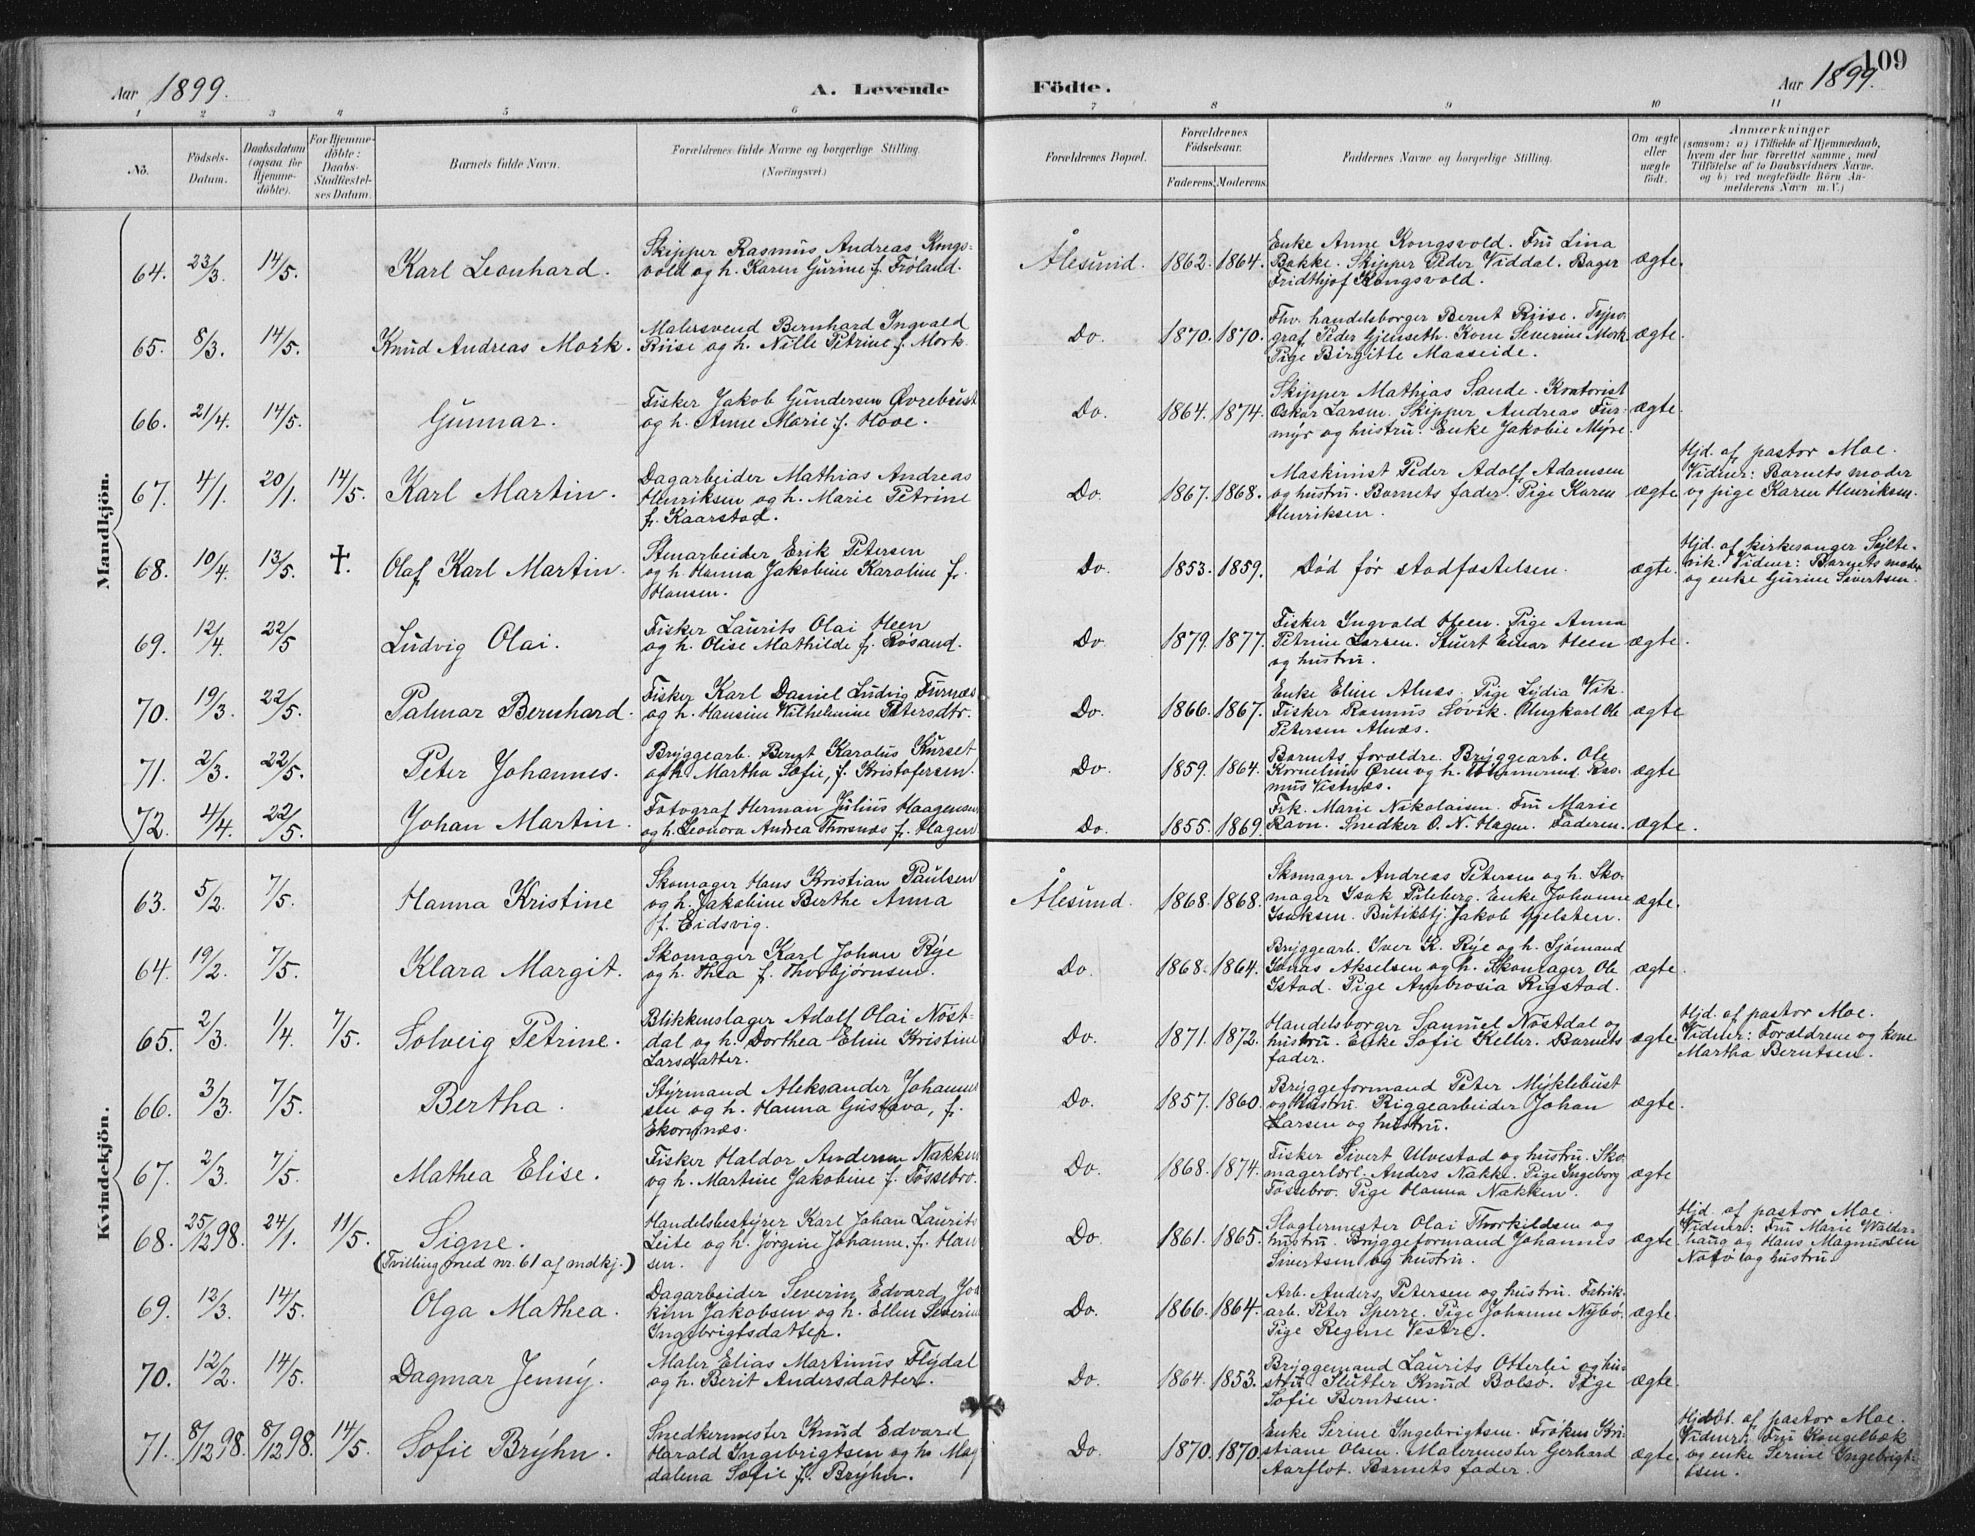 109
Aar 1899.
A. Levende Födte.
Aar 1899.
1 2 3 4 5 6 7 8 9 10 11
No.
Födsels-Datum.
Daabsdatum (ogsaa for Hjemme-döbte).
For Hjemme-döbte: Daabs-Stadfæstel-ses Datum.
Barnets fulde Navn.
Forældrenes fulde Navne og borgerlige Stilling.
(Næringsvei)
Forældrenes Bopæl.
Forældrenes Födselsaar.
Faderens. Moderens.
Faddernes Navne og borgerlige Stilling.
Om ægte eller uægte født.
Anmærkninger
(saasom: a) i Tilfælde af Hjemmedaab, hvem der har forrettet samme, med Tilföielse af to Daabsvidners Navne. og b) ved uægtefödte Börn An-melderens Navn m.V.)
Mandkjön.
64. 23/3. 14/5. Karl Leonhard.
Skipper Rasmus Andreas Kongs-
vold og h. Karen Gurine f. Frøland.
Ålesund. 1862. 1864.
Enke Anne Kongsvold. Fru Lina
Bakke. Skipper Peder Viddal. Bager
Fridthjof Kongsvold.
ægte.
65. 8/3. 14/5. Knud Andreas Mork.
Malersvend Bernhard Ingvald
Riise og h. Nille Petrine f. Mork
Do. 1870. 1870.
Fhv. handelsborger Bernt Riise. Typo-
graf Peder Gjenseth. Kone Severine Mork
Pige Birgitte Maaseide.
ægte.
66. 21/4. 14/5. Gunnar.
Fisker Jakob Gundersen Øvrebust
og h. Anne Marie f. Hove.
Do. 1864. 1874.
Skipper Mathias Sande. Kontorist
Oskar Larsen. Skipper Andreas Fur-
myr og hustru. Enke Jakobie Myre.
ægte.
67. 4/1. 20/1. 14/5. Karl Martin.
Dagarbeider Mathias Andreas
Henriksen og h. Marie Petrine
f. Kaarstad.
Do. 1867. 1868.
Maskinist Peder Adolf Adamsen
og hustru. Barnets fader. Pige Karen
Henriksen.
ægte
Hjd. af pastor Moe.
Vidner: Barnets moder
og pige Karen Henriksen.
68. 10/4. 13/5. †. Olaf Karl Martin.
Stenarbeider Erik Petersen
og h. Hanna Jakobine Karoline f.
Hansen.
Do. 1853. 1859. Død før stadfæstelsen. ægte.
Hjd. af kirkesanger Sylte-
vik. Vidner: Barnets moder
og enke Gurine Sivertsen.
69. 12/4. 22/5 Ludvig Olai.
Fisker Laurits Olai Heen
og h. Olise Mathilde f. Røsand.
Do. 1879. 1877.
Fisker Ingvald Heen. Pige Anna
Petrine Larsen. Stuert Einar Heen
og hustru.
ægte.
70. 19/3. 22/5. Palmar Bernhard.
Fisker Karl Daniel Ludvig Furnæs
og h. Hansine Wilhelmine Petersdtr.
Do. 1866. 1867.
Enke Eline Alnæs. Pige Lydia Vik.
Fisker Rasmus Søvik. Ungkarl Ole
Petersen Alnæs.
ægte
71. 2/3. 22/5. Peter Johannes.
Bryggearb. Bernt Karolus Kurset
og h. Martha Sofie, f. Kristofersen.
Do. 1859. 1864.
Barnets forældre. Bryggearb. Ole
Kornelius Øren og h. Tømmermd. Ras-
mus Vestnæs.
ægte
72. 4/4. 22/5. Johan Martin.
Fotograf Herman Julius Haagensen
og h. Leonora Andrea Thorsnæs f. Hagen
Do. 1855. 1869.
Frk. Marie Nikolaisen. Fru Marie
Ravn. Snedker O. N. Hagen. Faderen.
ægte.
Kvindekjön.
63. 5/2. 7/5. Hanna Kristine
Skomager Hans Kristian Paulsen
og h. Jakobine Berthe Anna
f. Eidsvig.
Ålesund. 1868. 1868.
Skomager Andreas Petersen og h. Sko-
mager Isak Pileberg. Enke Johanne
Isaksen. Butikbtj. Jakob Gjelsten.
ægte.
64. 19/2. 7/5. Klara Margit.
Skomager Karl Johan Rye
og h. Thea f. Thorbjørnsen.
Do. 1868. 1864.
Bryggearb. Iver K. Rye og h. Sjømand
Jonas Akselsen og h. Skomager Ole
Istad. Pige Ambrosia Rigstad.
ægte.
65. 2/3. 1/4. 7/5. Solveig Petrine.
Blikkenslager Adolf Olai Nøst-
dal og h. Dorthea Eline Kristine
Larsdatter.
Do. 1871. 1872.
Handelsborger Samuel Nøstdal og
hustru. Enke Sofie Keller. Barnets
fader.
ægte
Hjd. af pastor Moe.
Vidner: Forældrene og kone
Martha Berntsen.
66. 3/3. 7/5. Bertha.
Styrmand Aleksander Johanne-
sen og h. Hanna Gustava, f.
Ekornnæs.
Do. 1857. 1860.
Bryggeformand Peter Myklebust
og hustru. Riggearbeider Johan
Larsen og hustru.
ægte.
67. 2/3. 7/5. Mathea Elise.
Fisker Haldor Andersen Nakken
og h. Martine Jakobine f. Fossebro.
Do. 1868. 1874.
Fisker Sivert Ulvestad og hustru. Sko-
magerlærl. Anders Nakke. Pige Ingeborg
Fossebro. Pige Hanna Nakken.
ægte
68. 25/12 98. 24/1. 11/5. Signe.
(Tvilling med nr. 61 af mdkj.)
Handelsbestyrer Karl Johan Laurits
Leite og h. Jørgine Johanne, f. Han
sen.
Do. 1861. 1865.
Slagtermester Olai Thorkildsen og
hustru. Bryggeformand Johannes
Sivertsen og hustru.
ægte.
Hjd. af pastor Moe.
Vidner: Fru Marie Walder-
haug og Hans Magnussen
Notø og hustru.
69. 12/3. 14/5. Olga Mathea.
Dagarbeider Severin Edvard Joa
kim Jakobsen og h. Ellen Severine
Ingebrigtsdatter.
Do. 1866. 1864.
Arb. Anders Petersen og hustru. Fabrik-
arb. Peter Sperre. Pige Johanne Nybø.
Pige Regine Vestre.
ægte.
70. 12/2. 14/5. Dagmar Jenny.
Maler Elias Martinus Flydal
og h. Berit Andersdatter.
Do. 1864. 1853.
Bryggemand Laurits Otterlei og hu-
stru. Slutter Knud Bolsø. Pige
Sofie Berntsen.
ægte.
71. 8/12 98. 8/12 98. 14/5. Sofie Bryhn.
Snedkermester Knud Edvard
Harald Ingebrigtsen og h. Mag
dalena Sofie f. Bryhn.
Do. 1870. 1870.
Enke Serine Ingebrigtsen. Frøken Kri-
stiane Olsen. Malermester Gerhard
Aarflot. Barnets fader.
ægte.
Hjdbt. af pastor Moe.
Vidner: Fru Kongelbæk
og enke Serine Ingebrigt-
sen.